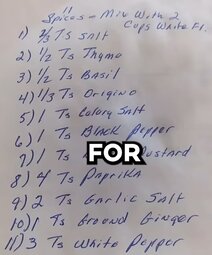 11 Spices - Mix With 2
Cups White Fl.
1) 2/3 Ts Salt
2) 1/2 Ts Thyme
3) 1/2 Ts Basil
4) 1/3 Ts Origino
5) 1 Ts Celery Salt
6) 1 Ts Black Pepper
7) 1 Ts Mustard
FOR
8) 4 Ts Paprika
9) 2 Ts Garlic Salt
10) 1 Ts Ground Ginger
11) 3 Ts White Pepper